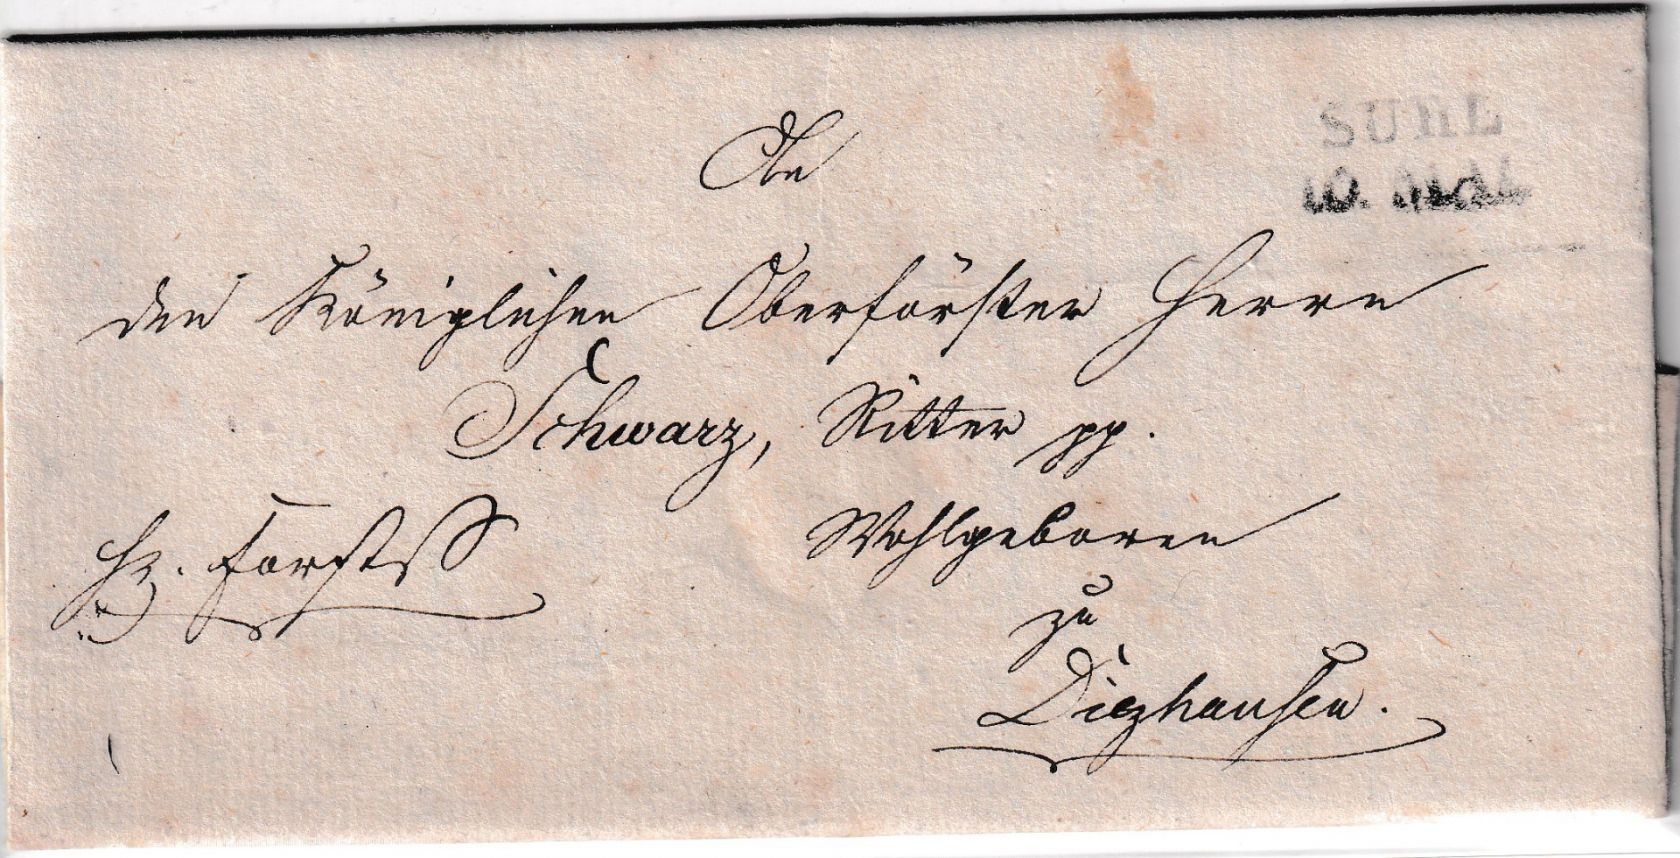 SUHL
10. MAI
An
den Königlichen Oberförster Herrn
Schwarz, Ritter pp.
Wohlgeboren
zu
Diezhausen.